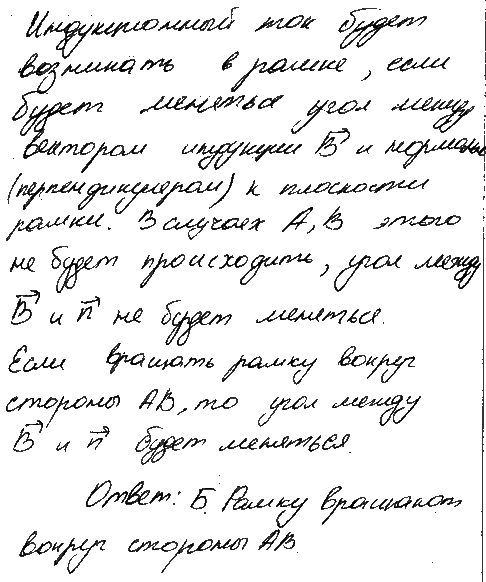 Индукционный ток будет
возникать в рамке, если
будет меняться угол между
вектором индукции B⃗ и нормалью
(перпендикуляром) к плоскости
рамки. В случаях А, В этого
не будет происходить, угол между
B⃗ и n⃗ не будет меняться.
Если вращать рамку вокруг
стороны АВ, то угол между
B⃗ и n⃗ будет меняться.
Ответ: Б. Рамку вращают
вокруг стороны АВ